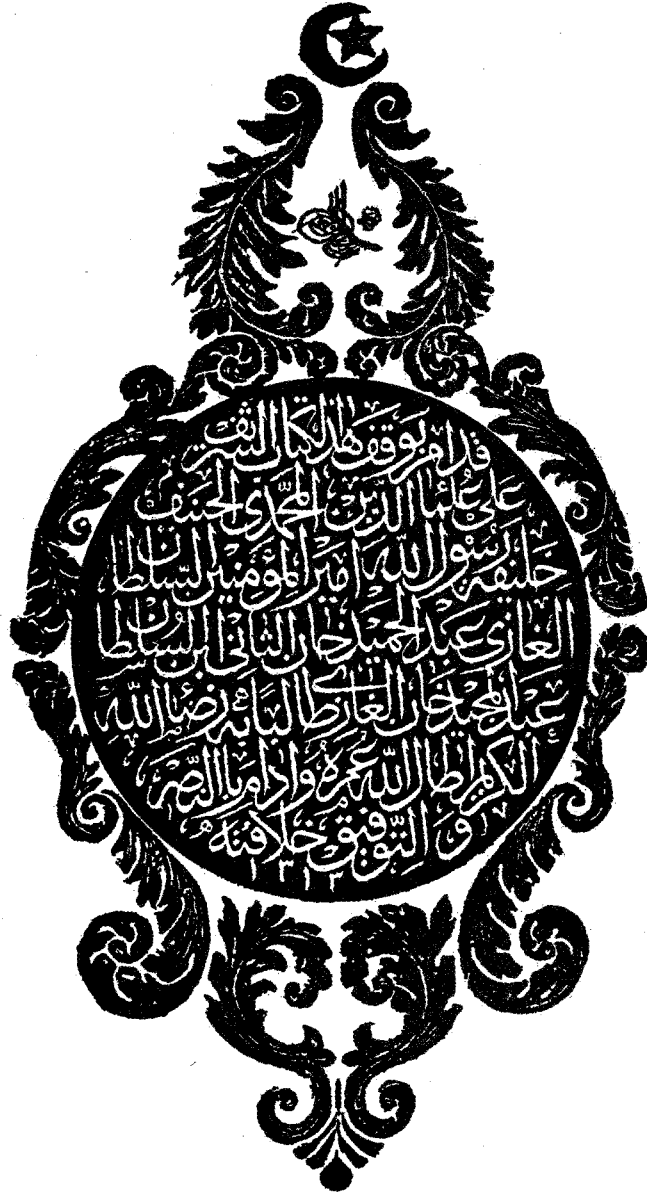 قد امر بوقف هذا الكتاب الشريف
على علماء الدين المحمدي الحنيف
خليفة رسول الله امير المؤمنين السلطان
الغازى عبد الحميد خان الثانى ابن السلطان
عبد المجيد خان الغازى طالبا به رضاء الله
الكريم اطال الله عمره وادام بالنصر
و التوفيق خلافته
١٣١٣